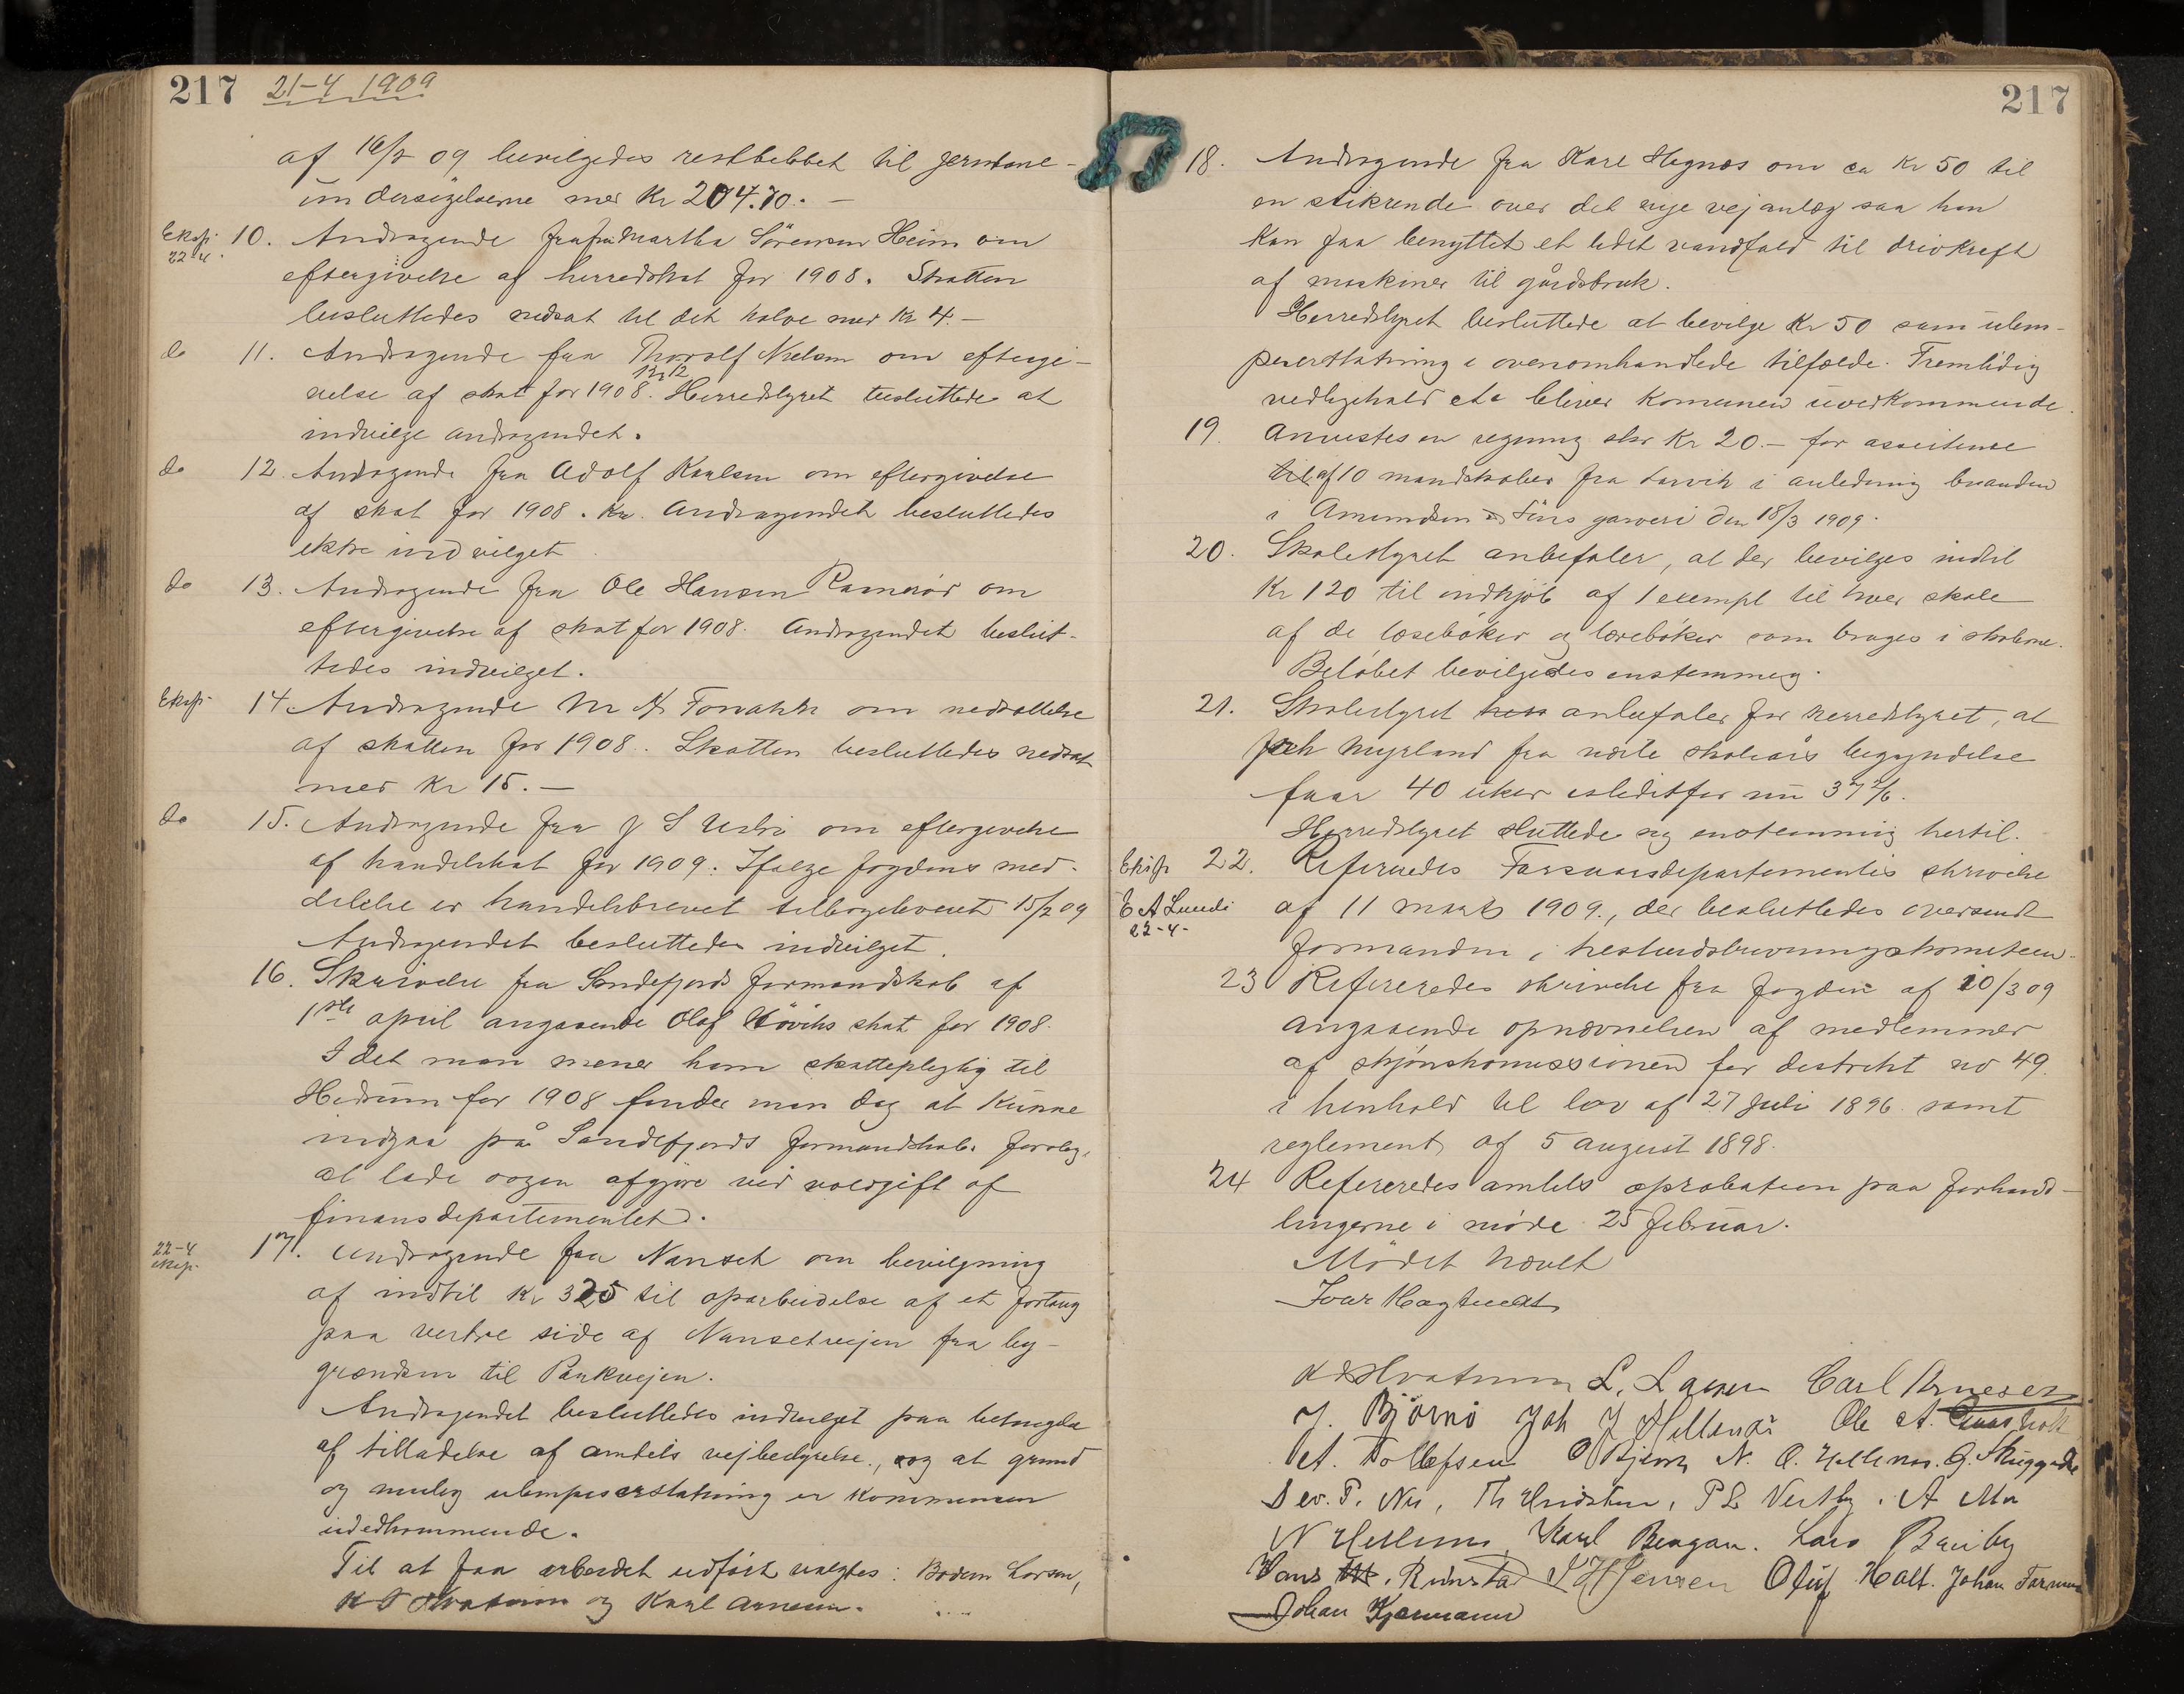 217 21-4 1909
af 16/2 09 bevilgedes restbeløbet til jernbane-
undersøgelserne med Kr 204.70. –
Eksp 22-4. 10. Andragende fra fru Martha Sörensen Heim om
eftergivelse af herredskat for 1908. Skatten
besluttedes nedsat til det halve med Kr 4. –
do 11. Andragende fra Thorolf Nielsen om eftergi-
velse af skat for 1908. Kr 12 Herredstyret besluttede at
indvilge andragendet.
do 12. Andragende fra Adolf Karlsen om eftergivelse
af skat for 1908. Kr. Andragendet besluttedes
ikke indvilget
do 13. Andragende fra Ole Hansen om
eftergivelse af skat for 1908. Andragendet beslut-
tedes indvilget.
Eksp 14. Andragende M A om nedsættelse
af skatten for 1908. Skatten besluttedes nedsat
med Kr 15. –
do 15. Andragende fra J S om eftergivelse
af handelskat for 1909. Ifølge fogdens med-
delelse er handelsbrevet tilbageleveret 15/2 09
Andragendet besluttedes indvilget.
16. Skrivelse fra Sandefjords formandskab af
1ste april angaaende Olaf skat for 1908.
I det man mener ham skattepligtig til
Hedrum for 1908 finder man dog at kunne
indgaa på Sandefjords formandskabs forslag,
at lade sagen afgjøre ved voldgift af
finansdepartementet.
22-4 eksp. 17. Andragende fra Nanset om bevilgning
af indtil Kr 325 til oparbeidelse af et fortaug
paa vestre side af Nansetveien fra by-
grændsen til Parkveien.
Andragendet besluttedes indvilget paa betingelse
af tilladelse af amtets vejbestyrelse, og at grund
og mulig ulempeserstatning er kommunen
uvedkommende.
Til at faa arbeidet udført valgtes: Larsen,
K S Hvatum og Karl Arnesen.
217
18. Andragende fra Kare Hegnæs om ca Kr 50 til
en stikrende over det nye vejanlæg saa han
kan faa benyttet et lidet vandfald til drivkraft
af maskiner til gårdsbruk.
Herredstyret besluttede at bevilge Kr 50 som ulem-
peserstatning i ovenomhandlede tilfælde. Fremtidig
vedligehold etc bliver komunen uvedkommende.
19. Anvistes en regning stor Kr 20. – for assistense
til af 10 mandskaber fra Larvik i anledning branden
i Amundsen & Füns garveri den 18/3 1909.
20. Skolestyret anbefaler, at der bevilges indtil
Kr 120 til indkjöb af 1 exempl til hver skole
af de læsebøker og lærebøker som bruges i skolerne.
Beløbet bevilgedes enstemmig.
21. Skolestyret anbefaler for herredstyret, at
Myrland fra næste skoleårs begyndelse
faar 40 uker istedetfor nu 37 2/6.
Herredstyret sluttede sig enstemmig hertil.
Eksp 22. Refereredes Forsvarsdepartementets skrivelse
E A Lunde 22-4- af 11 marts 1909, der besluttedes oversendt
formanden i hesteudskrivningskomiteen.
23 Refereredes skrivelse fra fogden af 10/3 09
angaaende opnævnelsen af medlemmer
af skjønskomissionen for destrikt no 49.
i henhold til lov af 27 juli 1896 samt
reglement af 5 august 1898.
24 Refereredes amtets aprobation paa forhand-
lingerne i møde 25 februar.
Mödet hævet
Ivar Hagtvedt
K S Hvatum L. Larsen Carl Arnesen
J. Björnö Joh J Hellenæs Ole A.
A. Tollefsen O Bjerke N. O. Hellenæs. G.
Th P L Vestby. A Mo
N Hellenæs Karl Lars
Hans M. S H Jensen Oluf Holt. Johan
Johan Kjærmann